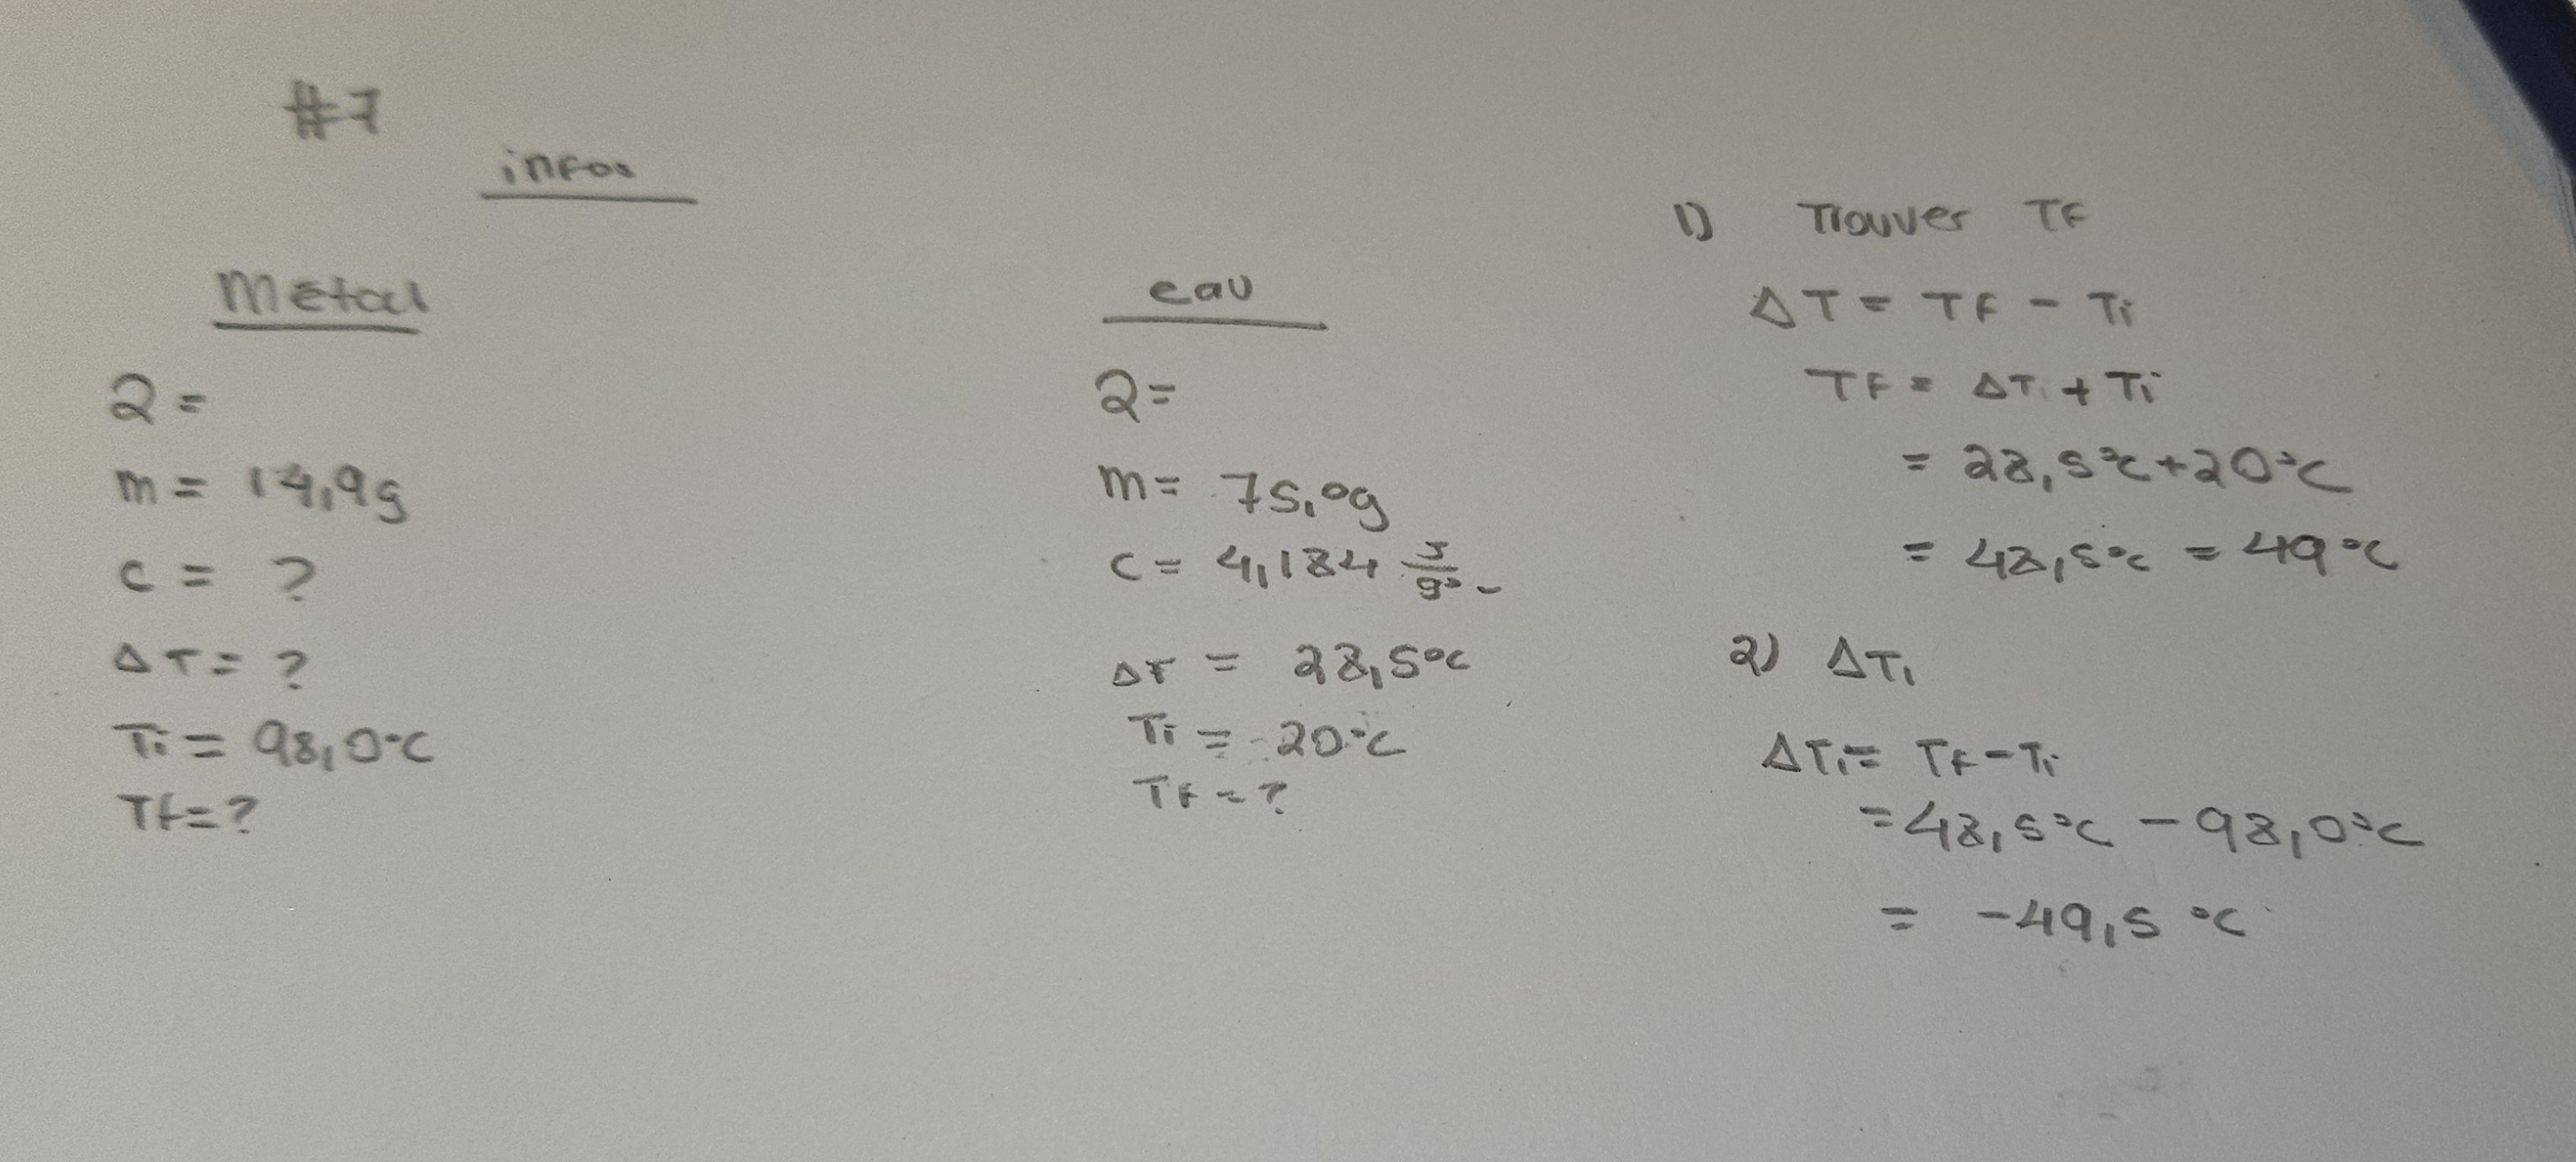 #7
infos
Métal
Q =
m = 14,9g
c = ?
ΔT = ?
Ti = 98,0°C
Tf = ?
eau
Q =
m = 75,0g
c = 4,184 J/g°C
ΔT = 28,5°C
Ti = 20°C
Tf = ?
1) Trouver TF
ΔT = TF - Ti
TF = ΔTi + Ti
= 28,5°C + 20°C
= 48,5°C = 49°C
2) ΔTi
ΔTi = TF - Ti
= 48,5°C - 98,0°C
= -49,5 °C